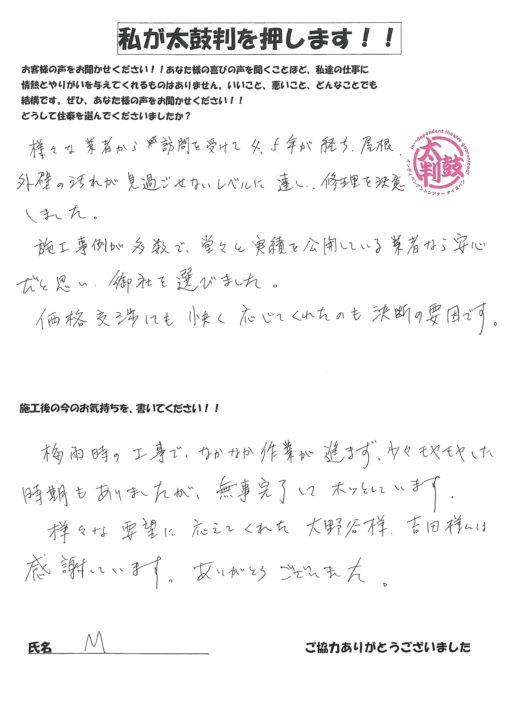 私が太鼓判を押します！！
お客様の声をお聞かせください！！あなた様の喜びの声を聞くことほど、私達の仕事に
情熱とやりがいを与えてくれるものはありません。いいこと、悪いこと、どんなことでも
結構です。ぜひ、あなた様の声をお聞かせください！！
どうして住泰を選んでくださいましたか？
太鼓判
様々な業者から訪問を受けて4、5年が経ち、屋根、
外壁の汚れが見過ごせないレベルに達し、修理を決意
しました。
施工事例が多数で、堂々と実績を公開している業者なら安心
だと思い、御社を選びました。
価格交渉にも快く応じてくれたのも決断の要因です。
施工後の今のお気持ちを、書いてください！！
梅雨時の工事で、なかなか作業が進まず、少々モヤモヤした
時期もありましたが、無事完了してホッとしています。
様々な要望に応えてくれた大野谷様、吉田様には
感謝しています。ありがとうございました。
氏名 M
ご協力ありがとうございました